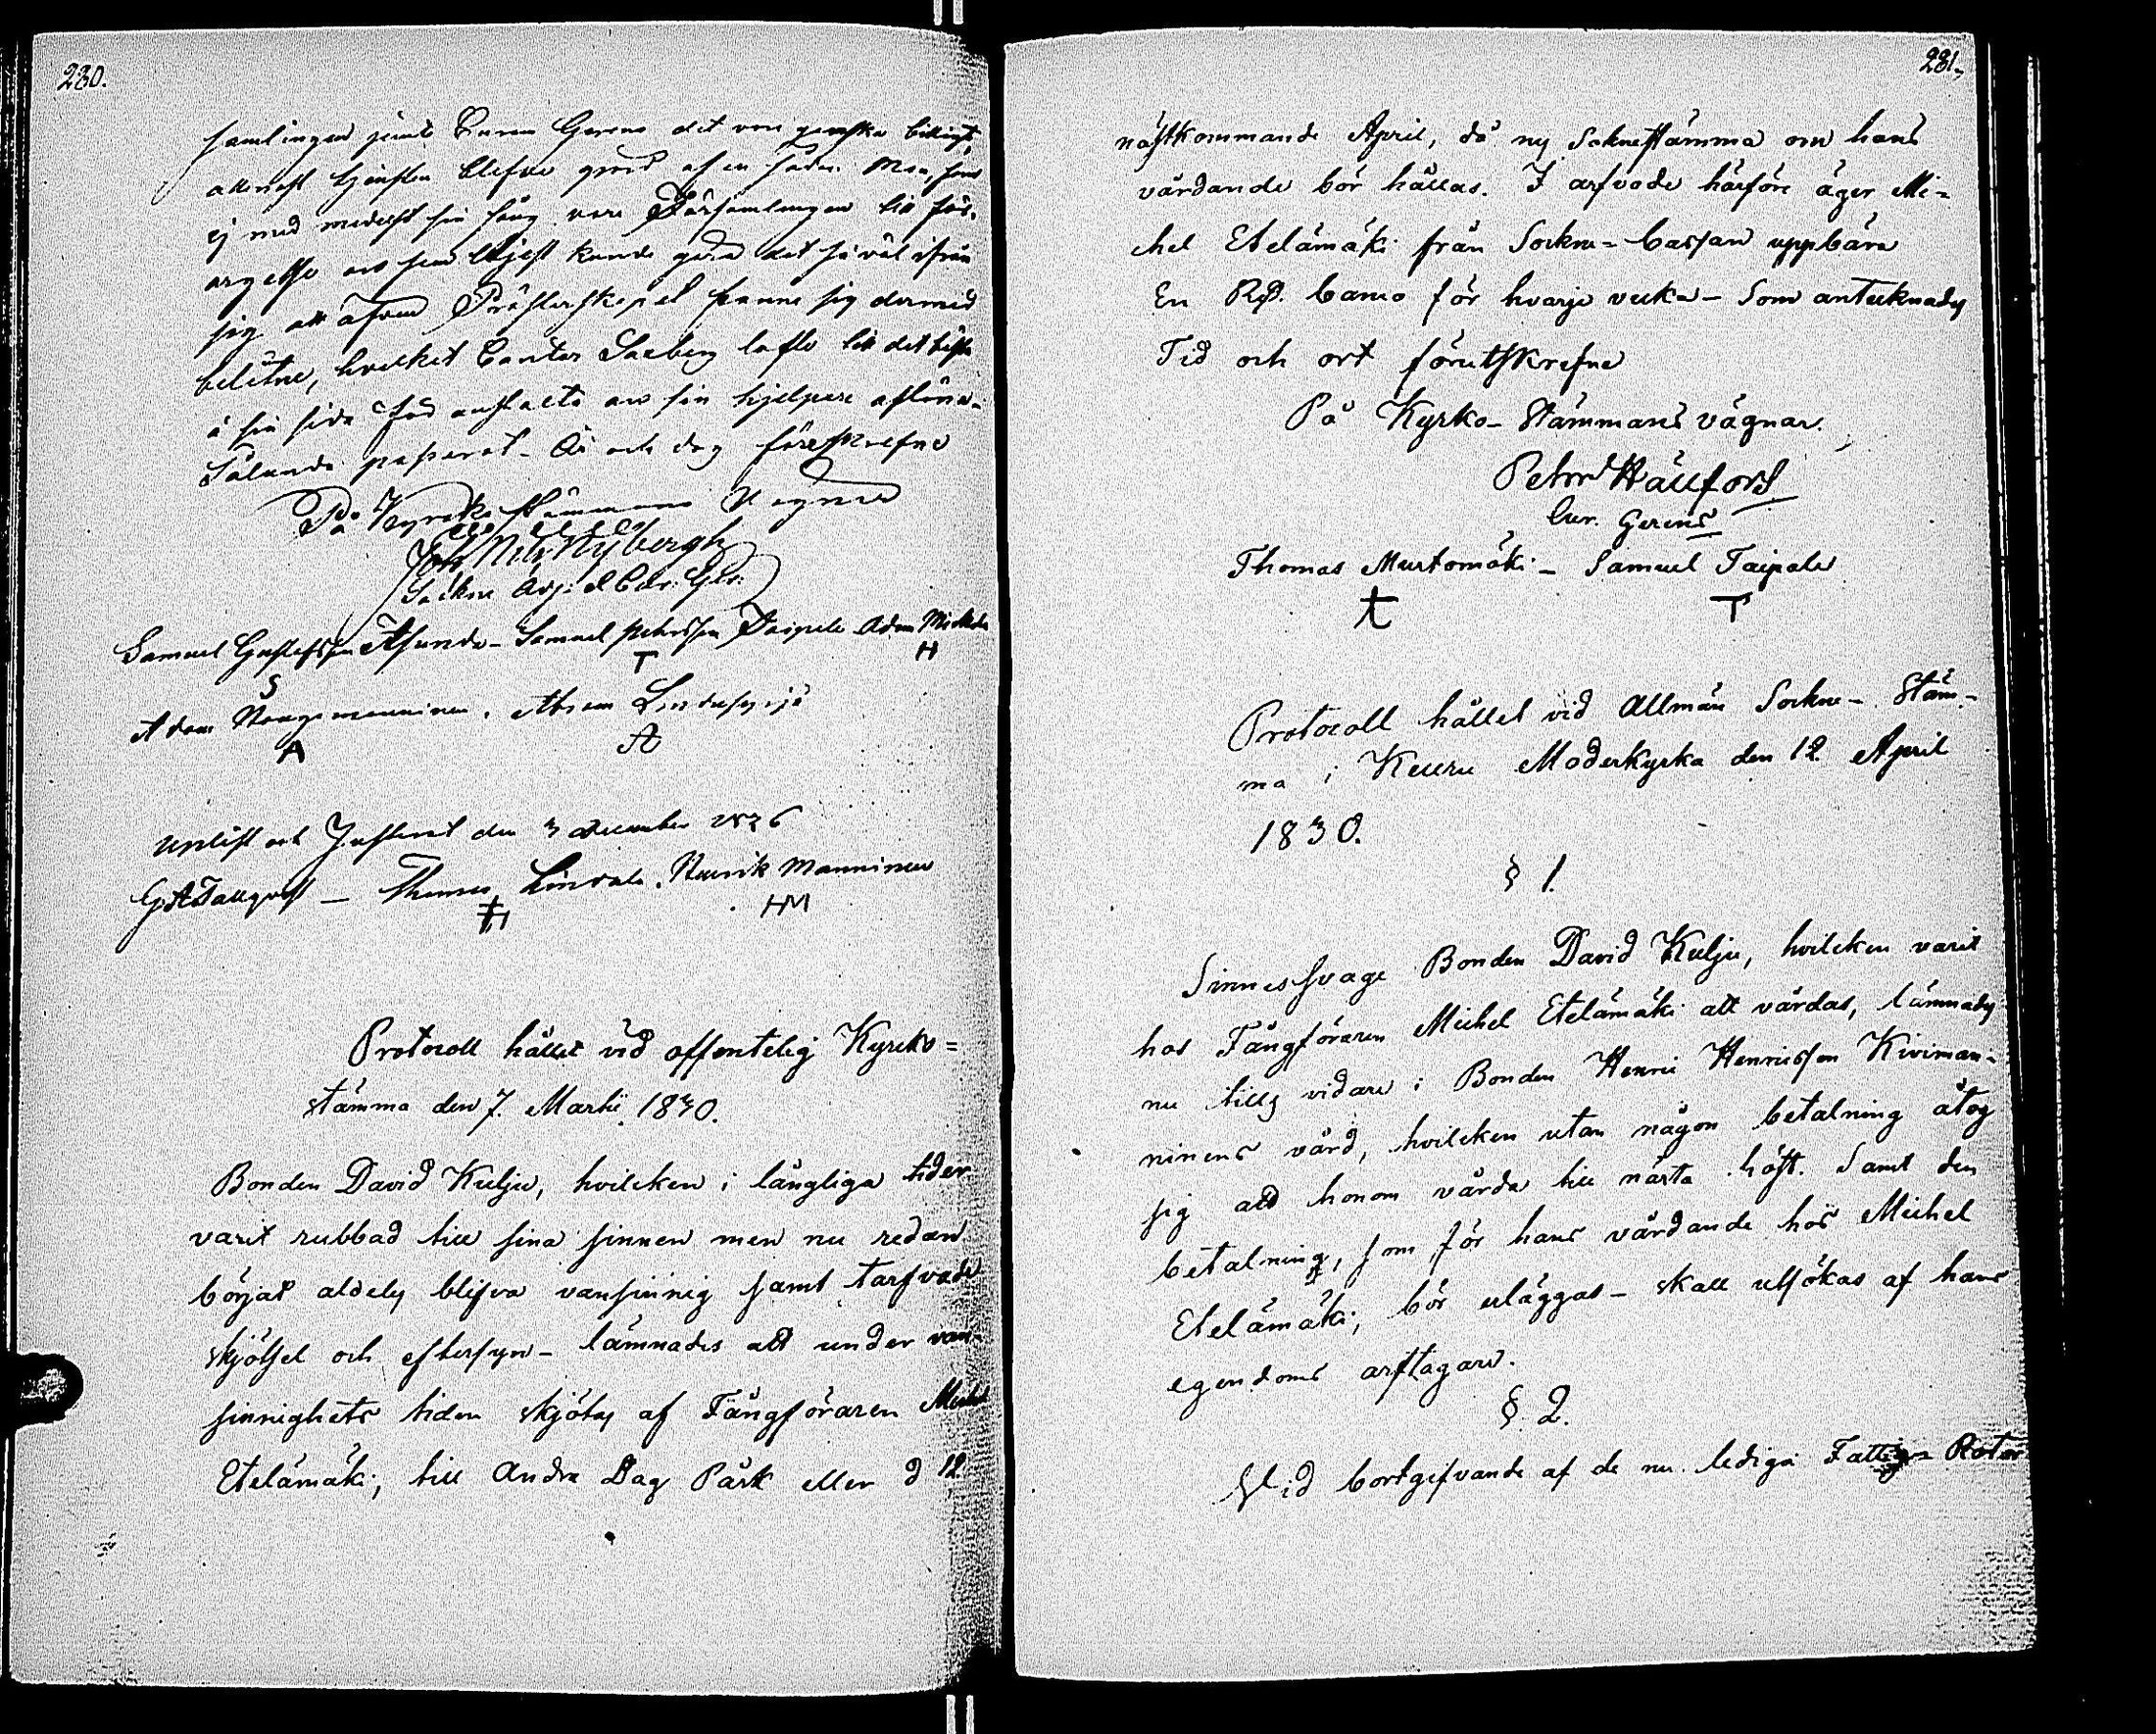 230.
samlingen jemte Curam Gerens det vara ganska billigt,
allenast tjensten blefve gjord af en sådan Man, som
ej med mederst sin sång vore Församlingen till för-
argelse och som eljest kunde göra det så väl ifrån
sig att äfven Prästerskapet funne sig dermed
belåtne, hvilket Cantor Saxberg lofte till det bästa
å sin sida och sin hjelpare aflöna.
Sålunda passerat. År och dag förutskrefne
På Kyrko Stämmans Vägnar
Joh Nils Nybergh
Sockne Adj: & Cur: Ger:
Samuel Gustafsson Asunda - Samuel Petersson Taipale Adam
S T H
Adam Haugemanninen. Abram
A A
Uplist och Justerat den 3 December 1826
G A Tallqvist - Thomas . Henrik Manninen
HM
Protocoll hållet vid offentelig Kyrko=
stämma den 7. Martii 1830.
Bonden David Kulju, hvilcken i långliga tider
varit rubbad till sina sinnen men nu redan
börjat aldeles blifva vansinnig samt tarfvade
skjötsel och eftersyn - lämnades att under van-
sinnighets tiden skjötas af Fångföraren Michel
Etelämäki, till Andra Dag Påsk eller d 12
281.
nästkommande April, då ny Sockneställma om hans
vårdande bör hållas. I arfvode härföre äger Mi=
chel Etelämäki från Sockne=cassan uppbära
En Rd. banco för hvarje vecka - Som antecknades
Tid och ort förutskrefne
På Kyrko-Stämmans vägnar.
Petter Hällfors
Cur. Gerens
Thomas Murtomäki - Samuel Taipale
T
Protocoll hållet vid Allmän Sockne-Stäm-
ma i Keuru Moderkyrka den 12. April
1830.
§ 1.
Sinnessvage Bonden David Kulju, hvilcken varit
hos Fångföraren Michel Etelämäki att vårdas, lämnades
nu tills vidare i Bonden Henric Henricsson Kiviman-
ninens vård, hvilcken utan någon betalning åtog
sig att honom vårda till nästa höst. Samt den
betalning, som för hans vårdande hos Michel
Etelämäki, bör erläggas - skall utsökas af hans
egendoms arftagare.
§ 2.
Vid bortgifvande af de nu lediga Fattige= Rotar